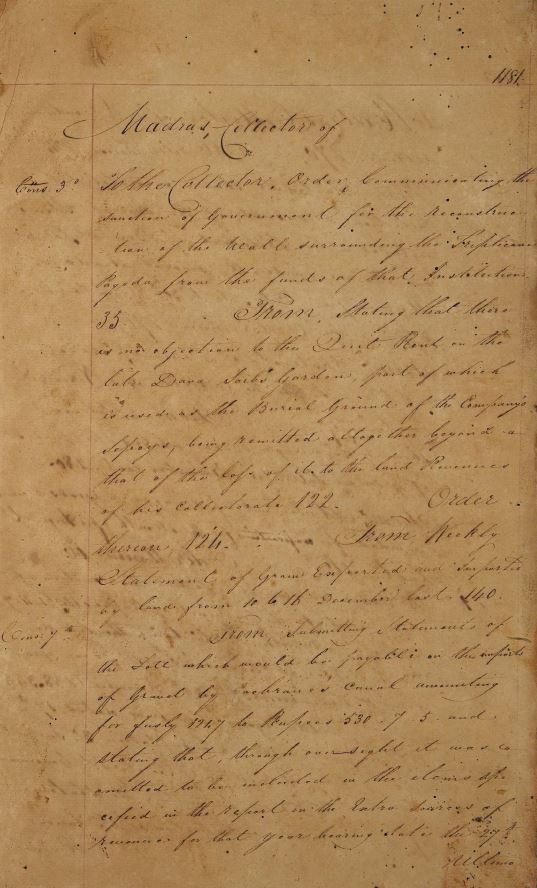 1181.
Madras, Collector of
Cons. 3d To the Collector, Order, Communicating the
sanction of Government for the reconstruc-
tion of the Wall surrounding the Triplicane
Pagoda from the funds of that Institution
33 From, Stating that there
is no objection to the Quit Rent on the
late Garden, part of which
is used as the Burial Ground of the Company's
Sepoys, being remitted altogether beyond
that of the loss of it to the land Revenues
of his collectorate 122. Order
thereon, 124. From, Weekly
Statement of Grain Exported and Imported
by land from 10 to 16 December last 140.
Cons. 7 From, Submitting Statements of
the Toll which would be payable on the imports
of by Cochrane's canal amounting
for Fusly 1247 to Rupees 530. 7. 5. and
stating that, through oversight it was
omitted to be included in the items spe-
cified in the report on the Extra Sources of
revenue for that year bearing date the 27th
Ultimo